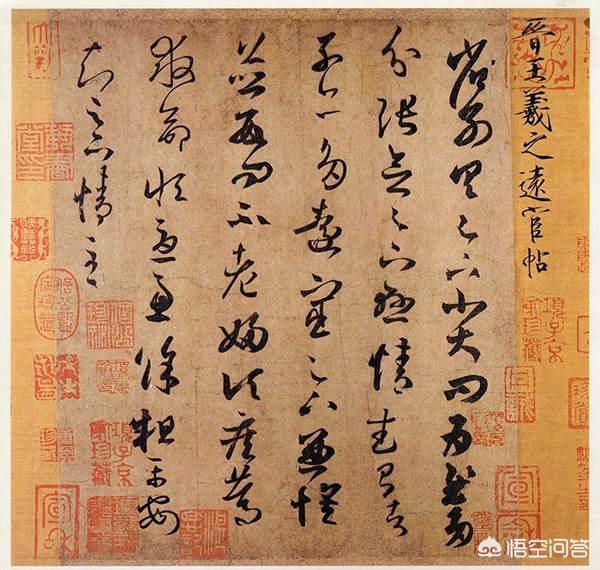 晉王羲之遠宦帖
省別具足下小大問為慰多
分張念足下懸情武昌諸
子亦多遠宦足下兼懷
並數問不老婦頃疾篤
救命恒憂慮餘粗平安
知足下情至
項子京家珍藏
悟空问答